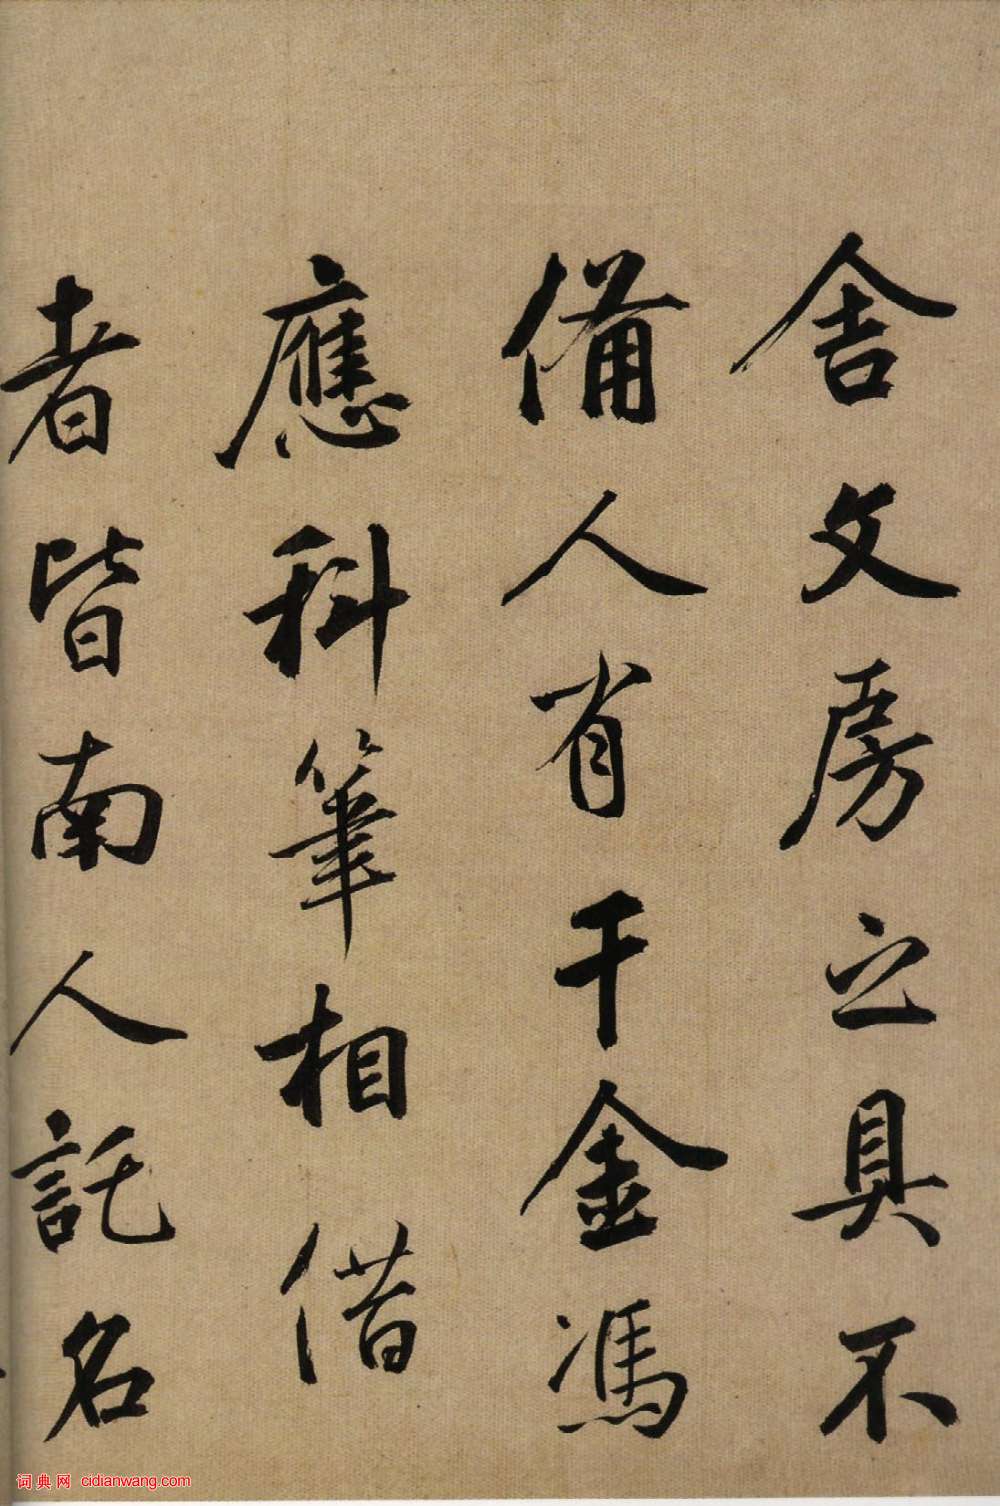 舍文房之具不
備人有千金馮
應科筆相借
者皆南人託名
词典网 cidianwang.com